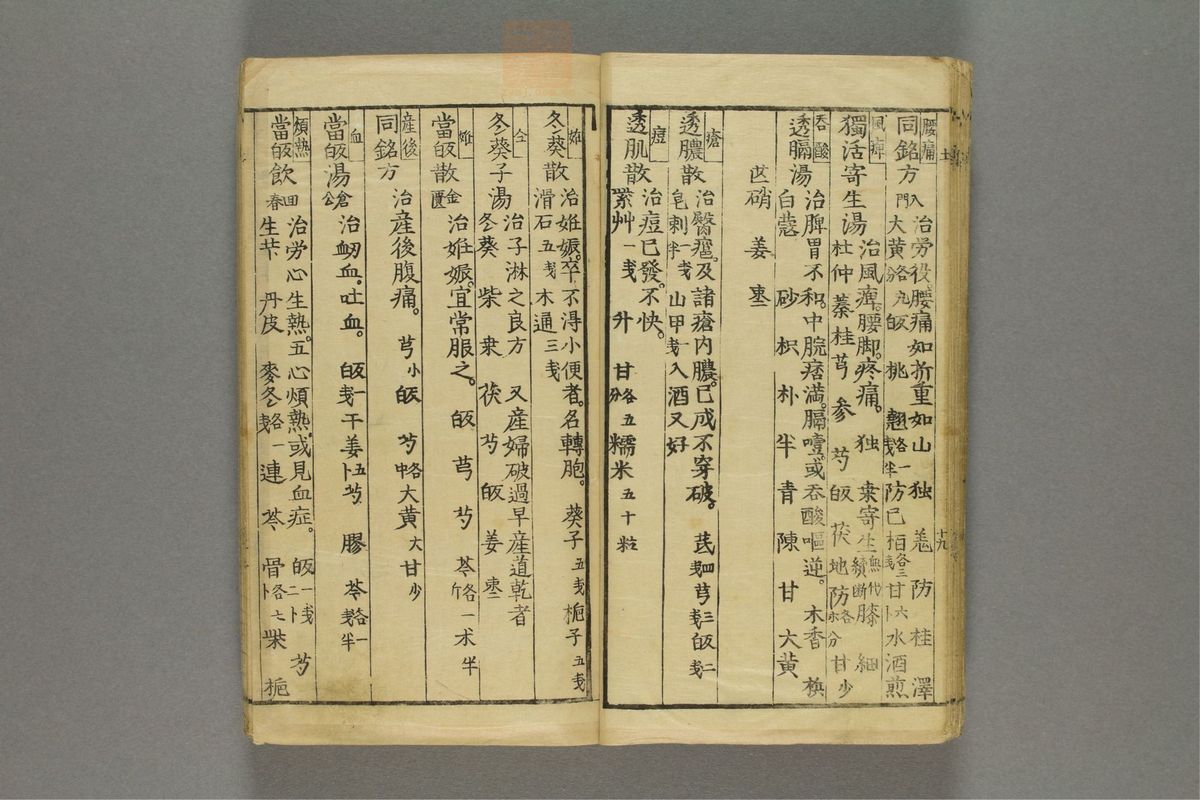 腰痛
同銘方 入門 治労役腰痛如折重如山 独 羗 防 桂 澤
大黄各九分 皈 桃 翹各一戋半 防己 栢各三戋 甘六卜 水酒煎
風痺
獨活寄生湯 治風痺腰脚疼痛 独 桒寄生無代續断 膝 細
杜仲 蓁 桂 芎 参 芍 皈 茯 地 防各求分 甘少
呑酸
透膈湯 治脾胃不和中脘痞満膈噎或呑酸嘔逆 木香 梹
白蔲 砂 枳 朴 半 青 陳 甘 大黄
芒硝 姜 枣
瘡
透膿散 治醫癰及諸瘡内膿已成不穿破 芪四戋 芎三戋 皈二戋
皂刺一戋半 山甲一戋 入酒又好
痘
透肌散 治痘已發不快
紫艸一戋 升 甘各五分 糯米五十粒
妊
冬葵散 治妊娠卒不淂小便者名轉胞 葵子五戋 梔子五戋
滑石五戋 木通三戋
仝
冬葵子湯 治子淋之良方 又産婦破過早産道乾者
冬葵 柴 桒 茯 芍 皈 姜 枣
妊
當皈散 金匱 治妊娠宜常服之 皈 芎 芍 芩各一斤 朮半
産後
同銘方 治産後腹痛 芎小 皈 芍各中 大黄大 甘少
血
當皈湯 倉公 治衂血吐血 皈一戋 干姜五卜 芍 膠 芩各一戋半
煩熱
當皈飲 回春 治労心生熱五心煩熱或見血症 皈一戋二卜 芍
生苄 丹皮 麥冬各一戋 連 芩 骨各七卜 柴 梔